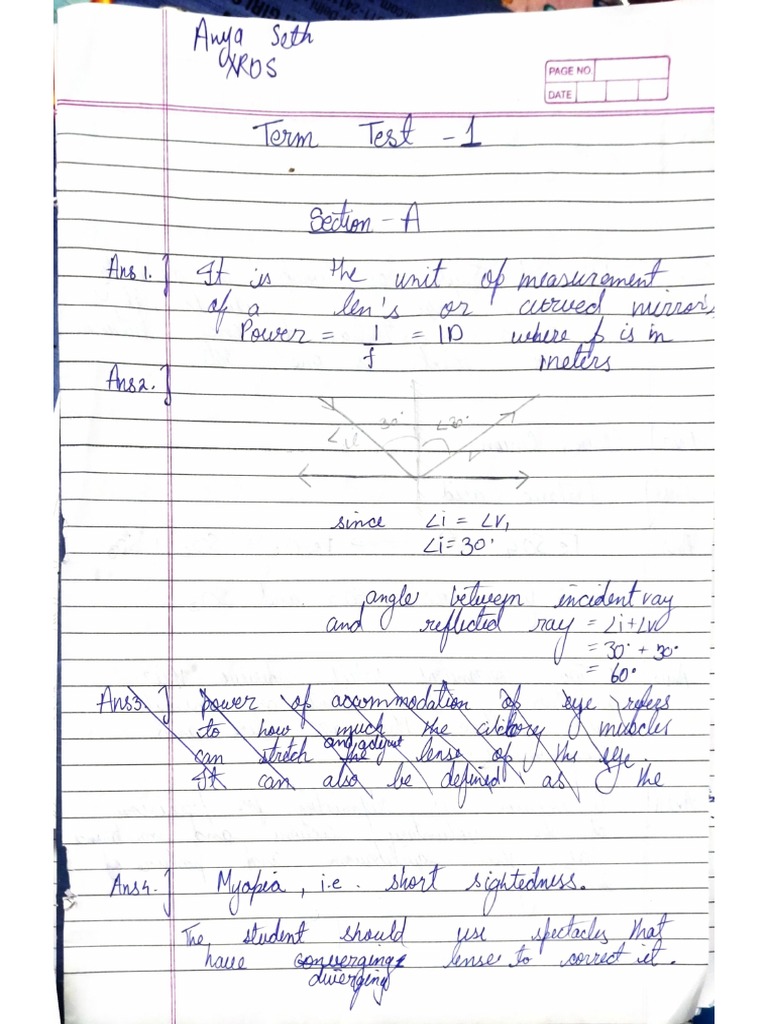 Anya Seth
XROS
PAGE NO.
DATE
Term Test - 1
Section - A
Ans 1.] It is the unit of measurement
of a len's or curved mirror's
Power = 1/f = 1D where f is in
meters
Ans2.]
∠i 30° ∠30°
since ∠i = ∠r,
∠i = 30°
angle between incident ray
and reflected ray = ∠i+∠r
= 30° + 30°
= 60°
Ans3.] Power of accommodation of eye refers
to how much the muscles
can stretch and adjust the lense of the eye.
It can also be defined as the
Ans4.] Myopia, i.e. short sightedness.
The student should use spectacles that
have converging lense to correct it.
diverging